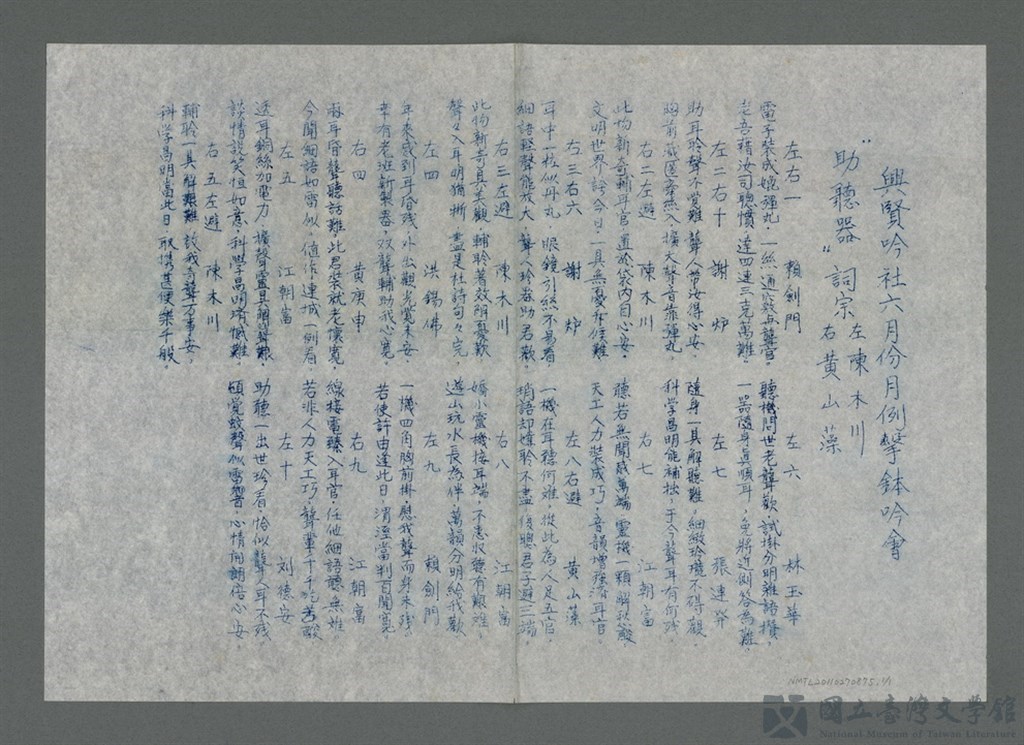 興賢吟社六月份月例擊鉢吟會
"助聽器" 詞宗 左 陳木川 右 黃山藻
左右一 賴劍門
電子裝成婉彈丸，一絲通竅再聾官，
老吾藉汝司聽慣，達四連三克萬難，
左二右十 謝炉
助耳聆聲不覺難，聾人帶汝得心安，
胸前 入，擴大聲音靠彈丸，
右二左避 陳木川
此物新奇輔耳官，置於袋內自心安，
文明世界誇今日，一具無憂有候難
右三右六 謝炉
耳中一粒似丹丸，眼鏡引絲不易看，
細語輕聲能放大，聾人珍眷助君歡，
右三左避 陳木川
此物新奇具大觀，輔聆著效開憂歡
聲々入耳明猶晰，盡是杜詩句々完，
左四 洪錫佛
年來感到耳唇殘，外出觀光覺未安
幸有老班新製器，双聲輔助我心寬，
右四 黃庚申
兩耳宿聾聽話難，此君裝就老懷寬，
今聞細語如雷似，值作連城一例看，
左五 江朝富
透耳銅絲加電力，擴聲靈具解聾艱，
談情說笑恒如意，科學昌明補憾難，
右五左避 陳木川
輔聆一具解艱難，故我奇聾万事安，
科学昌明當此日，取携甚便樂千般，
左六 林玉華
聽機問世老聾歡，試掛分明雜語攢，
一器隨身真順耳，免將近側答為難，
左七 張連發
隨身一具解聽難，細緻玲瓏不碍觀，
科學昌明能補拙，于今聾耳有何殘
右七 江朝富
聽若無聞感萬端，靈機一顆解愁顏，
天工人力裝成巧，音韻增強濟耳官，
左八右避 黃山藻
一機在耳聽何難，從此為人足五官，
悄語却憐聆不盡，後與君子避三端，
右八 江朝富
嬌小靈機接耳端，不患收聽有艱難，
遊山玩水長為伴，萬韻分明給我歡，
左九 賴劍門
一機四角胸前掛，慰我聾而身未殘，
若使許由逢此日，渭涇當判百聞寬，
右九 江朝富
線接電臻入耳官，任他細語聽無難
若非人力天工巧，聾輩千千吃苦酸
左十 刘德安
助聽一出世珍看，恰似聾人耳不殘，
頓覺蚊聲似雷響，心情開朗倍心安，
NMTL20110270875.1/1
國立臺灣文學館
National Museum of Taiwan Literature